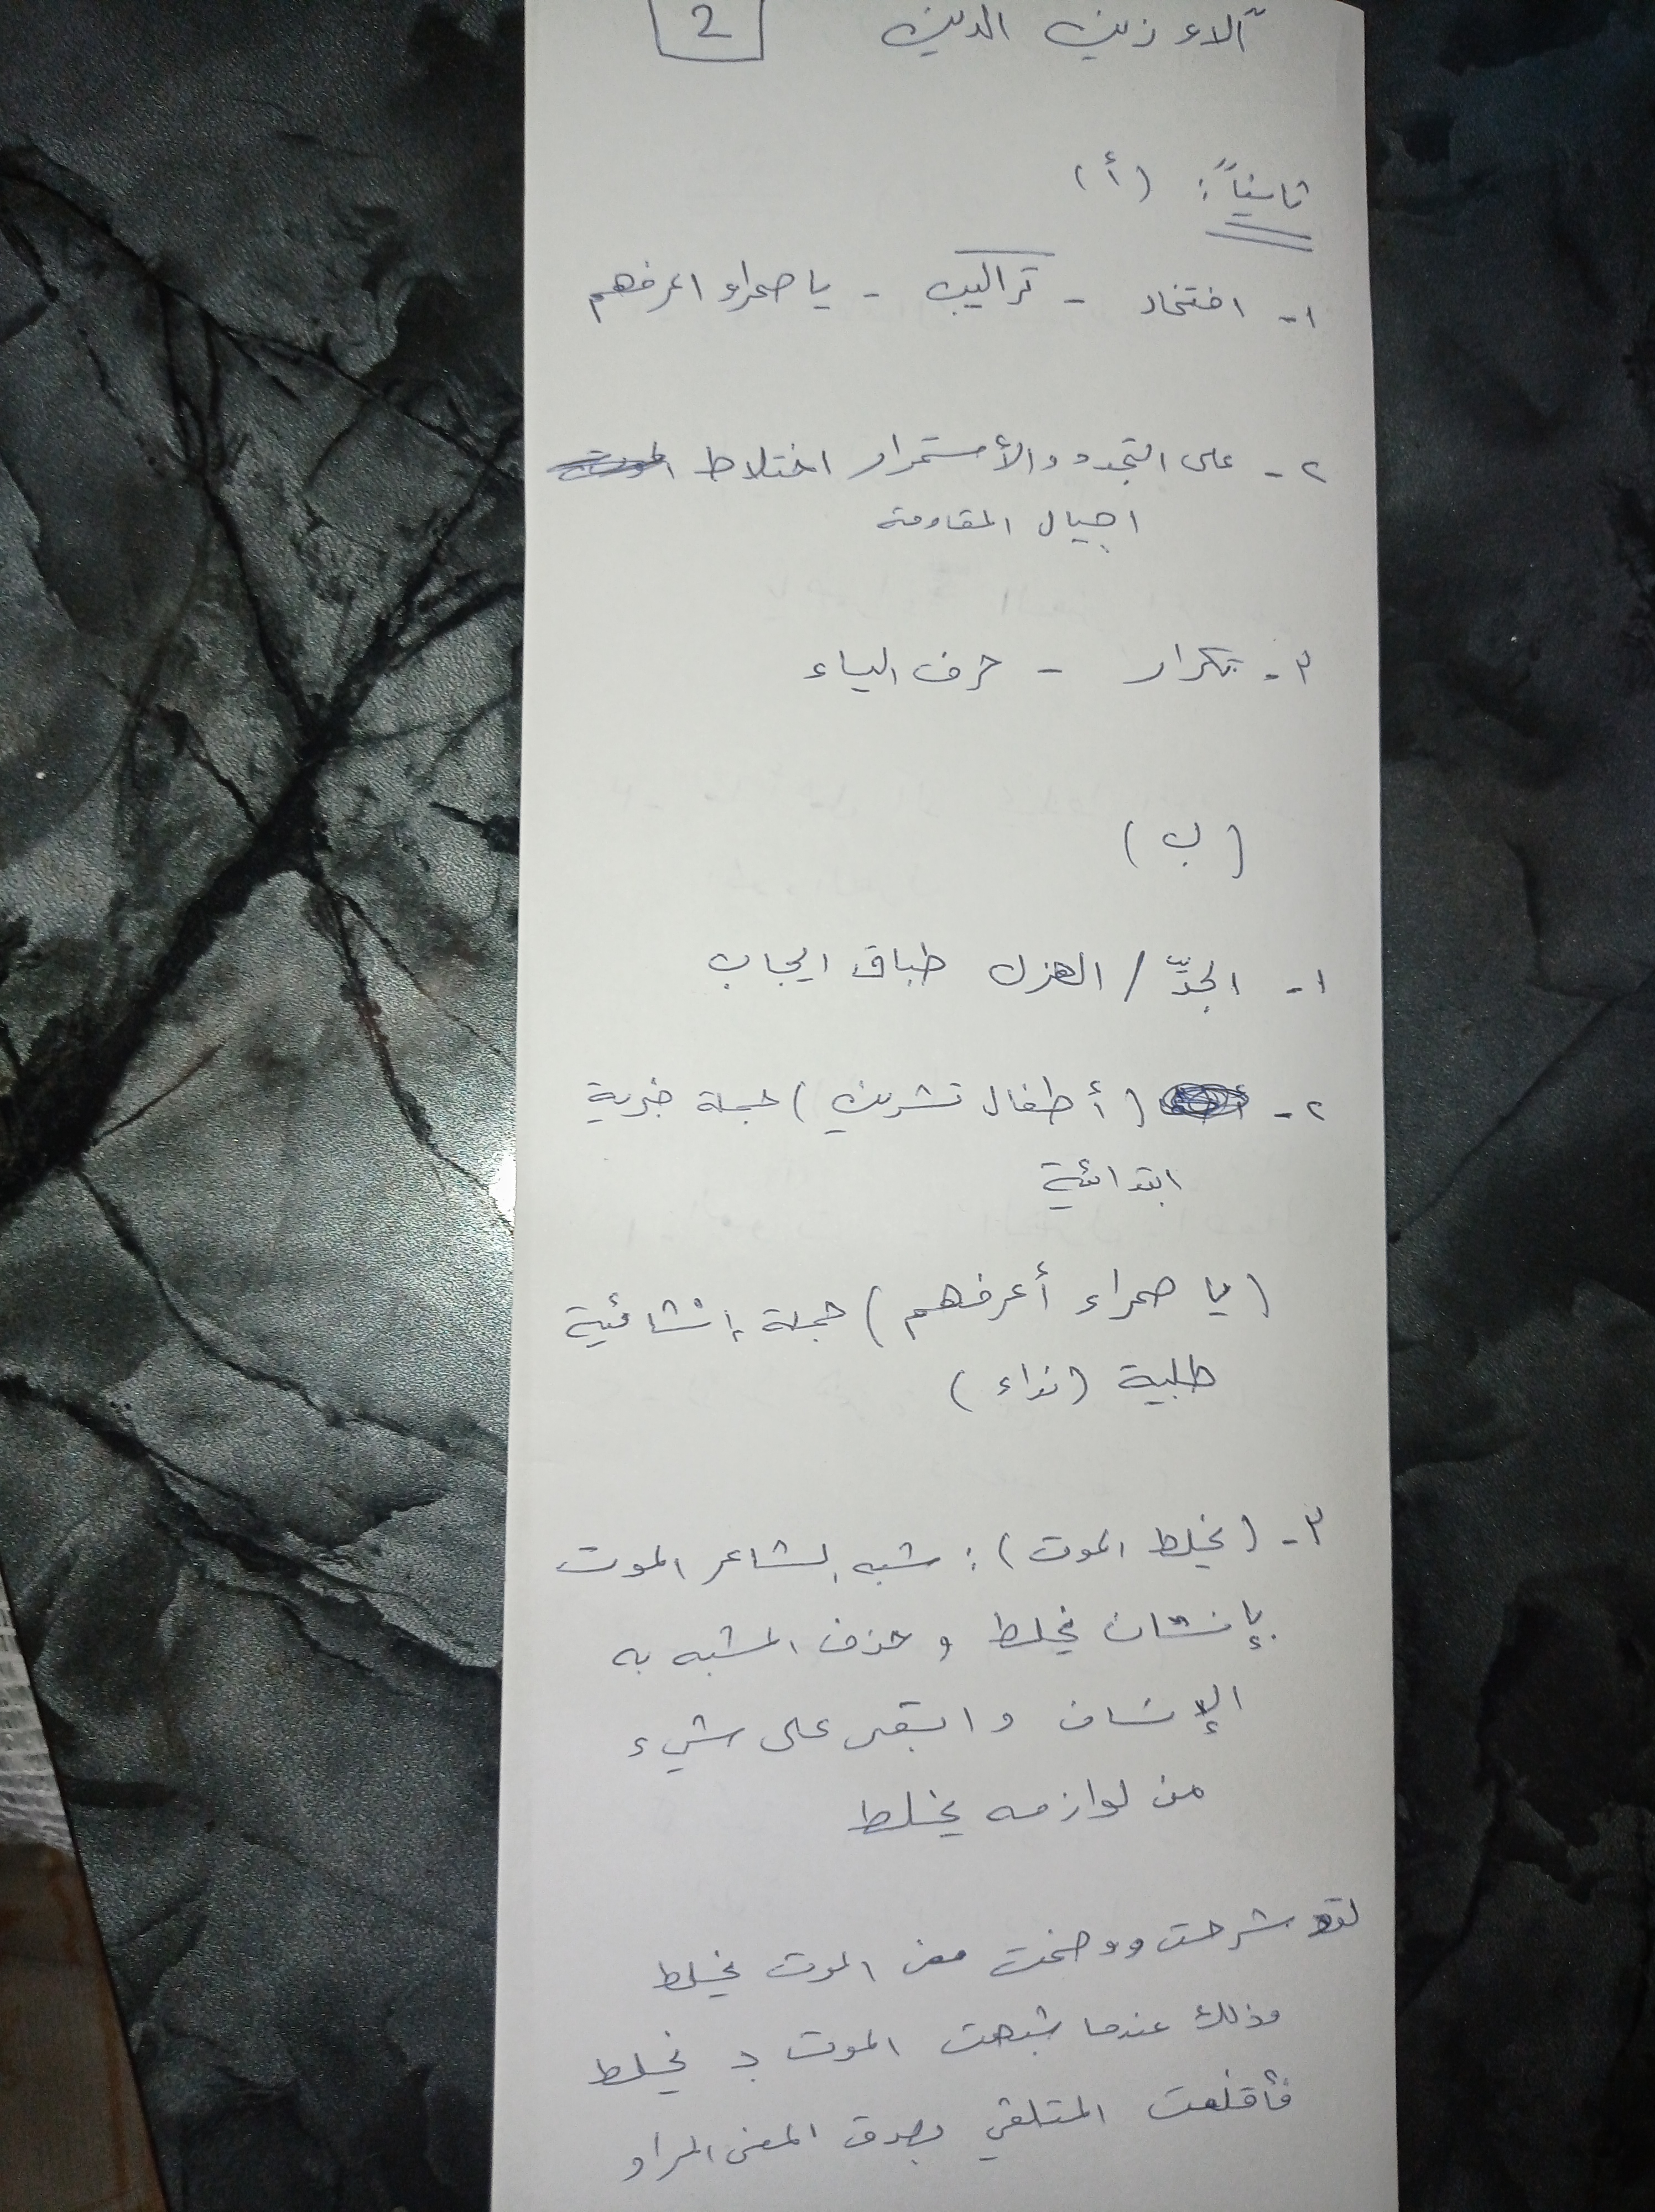 آلاء زين الدين 2
ثانياً: (أ)
١- افتخار - تراكيب - يا صحراء اعرفهم
٢- على التجدد والأستمرار اختلاط
اجيال المقاومة
٣- تكرار - حرف الياء
(ب)
١- الجدّ / الهزل طباق ايجاب
٢- (أطفال تشرين) جملة خبرية
ابتدائية
(يا صحراء أعرفهم) جملة إنشائية
طلبية (نداء)
٣- (يخلط الموت): شبه الشاعر الموت
بإنسان يخلط و حذف المشبه به
الإنسان و ابقى على شيء
من لوازمه يخلط
لقد شرحت ووضحت معنى الموت يخلط
وذلك عندما شبهت الموت بـ يخلط
فأقنعت المتلقي بصدق المعنى المراد